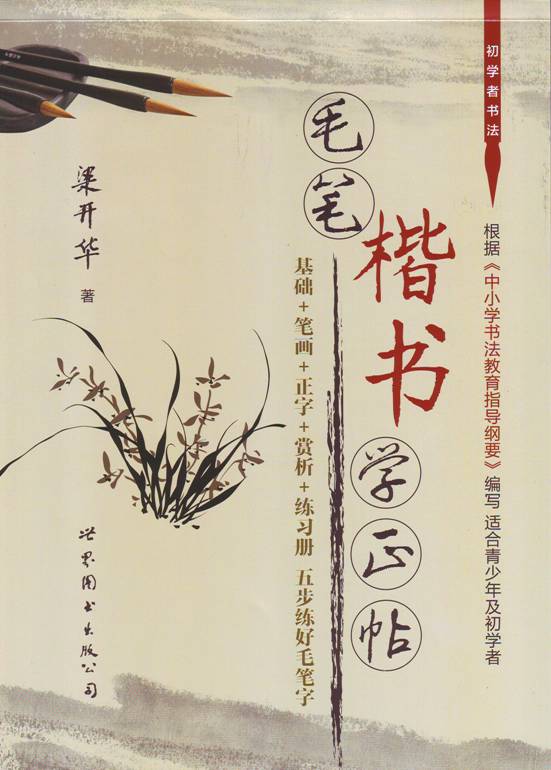 初学者书法
根据《中小学书法教育指导纲要》编写 适合青少年及初学者
毛笔
楷书
学正帖
基础+笔画+正字+赏析+练习册 五步练好毛笔字
梁开华 著
世界图书出版公司